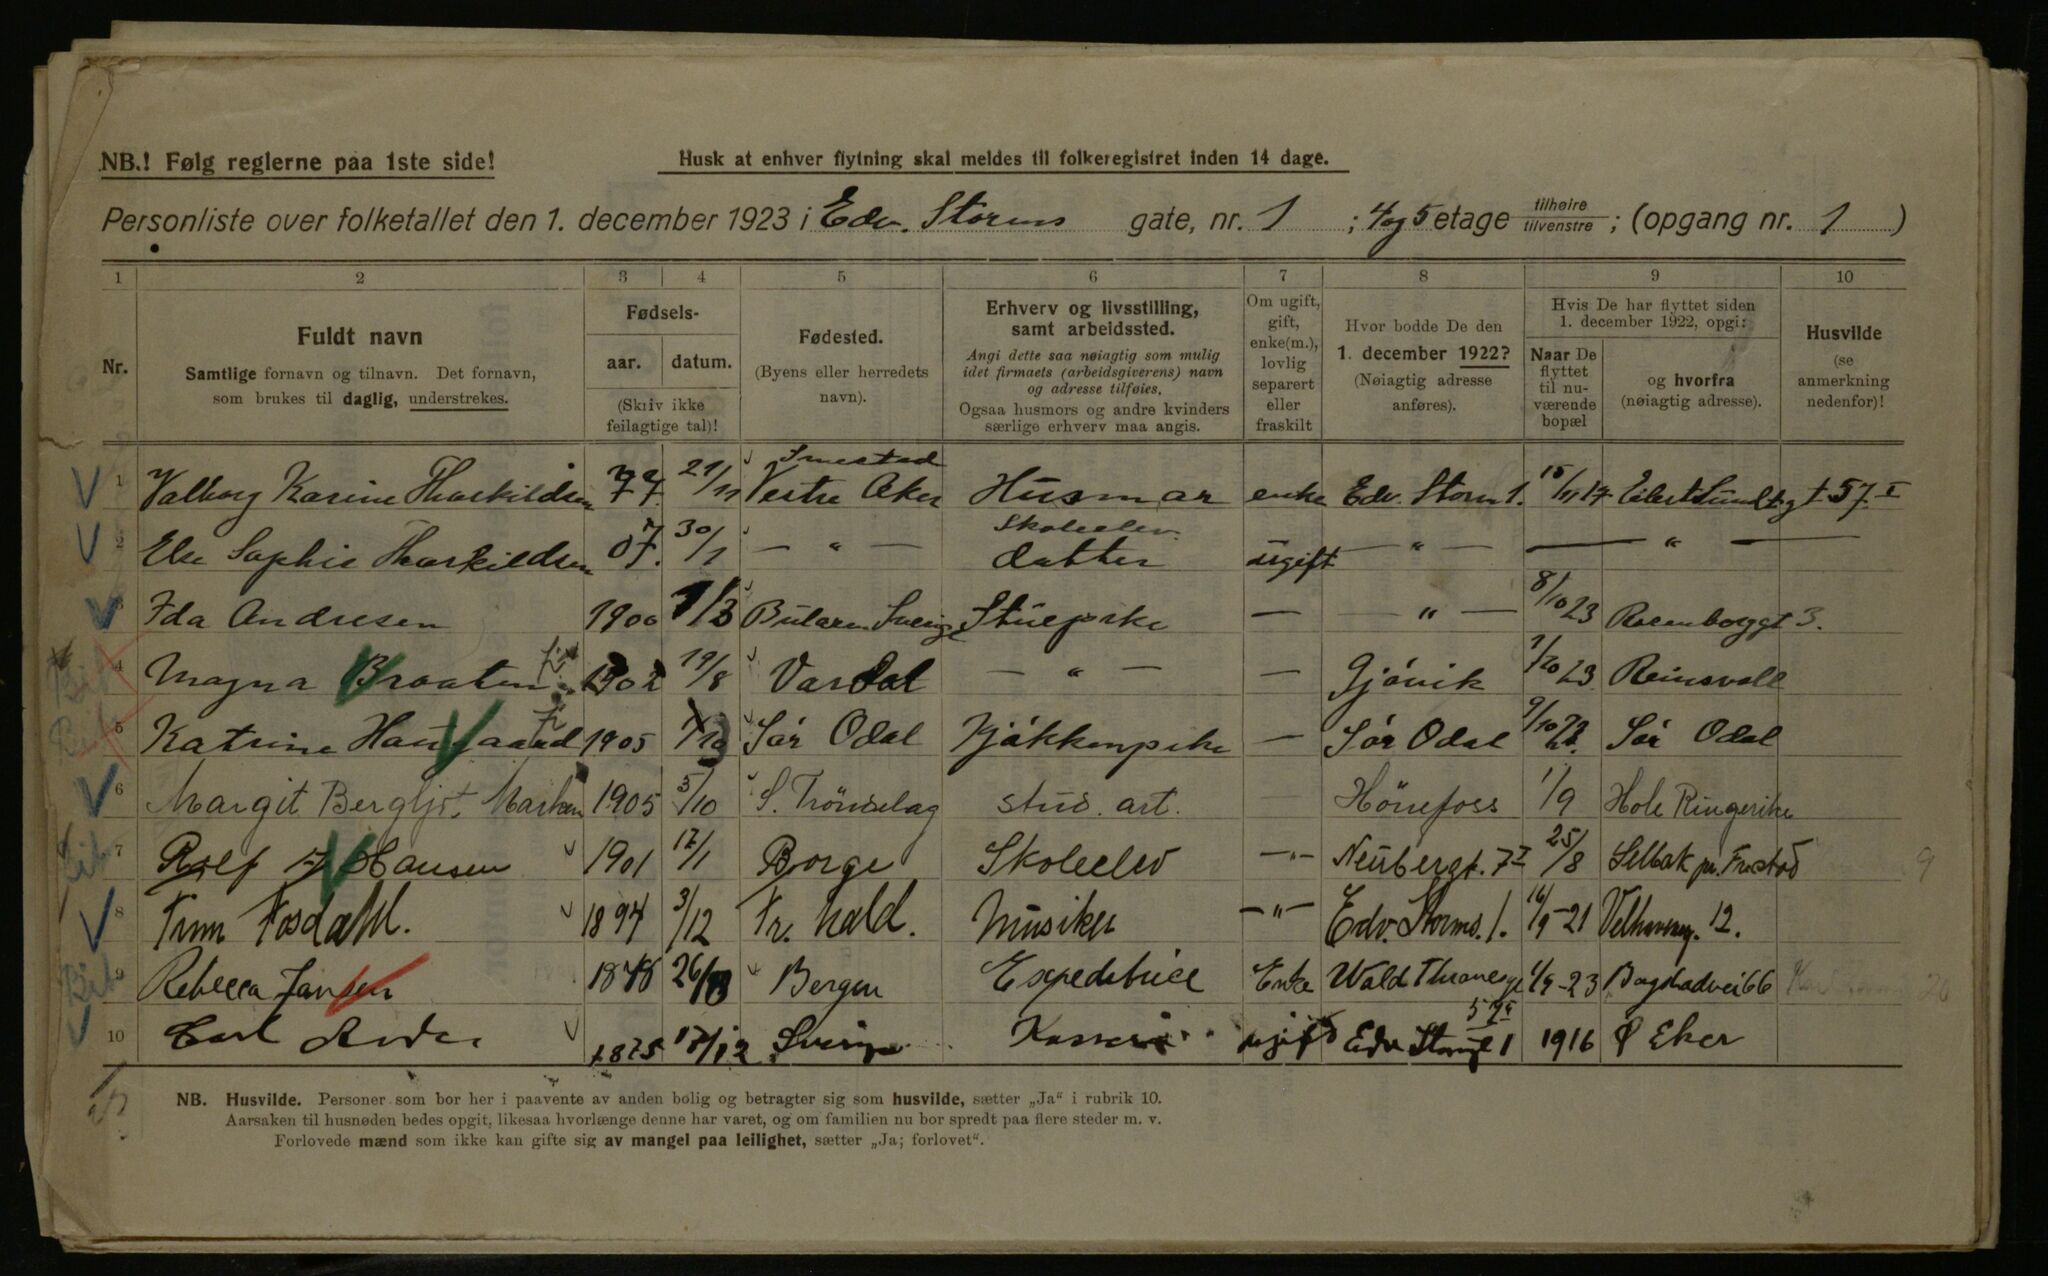 NB.! Følg reglerne paa 1ste side!
Husk at enhver flytning skal meldes til folkeregistret inden 14 dage.
Personliste over folketallet den 1. december 1923 i Edv. Storms gate, nr. 1 ; 4 og 5 etage tilhøire tilvenstre ; (opgang nr. 1 )
1 2 3 4 5 6 7 8 9 10
Nr.
Fuldt navn
Samtlige fornavn og tilnavn. Det fornavn,
som brukes til daglig, understrekes.
Fødsels-
aar. datum.
(Skriv ikke
feilagtige tal)!
Fødested.
(Byens eller herredets
navn).
Erhverv og livsstilling,
samt arbeidssted.
Angi dette saa nøiagtig som mulig
idet firmaets (arbeidsgiverens) navn
og adresse tilføies.
Ogsaa husmors og andre kvinders
særlige erhverv maa angis.
Om ugift,
gift,
enke(m.),
lovlig
separert
eller
fraskilt
Hvor bodde De den
1. december 1922?
(Nøiagtig adresse
anføres).
Hvis De har flyttet siden
1. december 1922, opgi:
Naar De
flyttet
til nu-
værende
bopæl
og hvorfra
(nøiagtig adresse).
Husvilde
(se
anmerkning
nedenfor)!
Smestad
1 Valborg Karine Thorkildsen 77. 21/11 Vestre Aker Husmor enke Edv. Storm 1. 15/11 17 Eilert Sundtsgt. 57 I
Skoleelev.
2 Else Sophie Thorkildsen 07. 30/1 — " — datter ugift — " — — " —
3 Ida Andresen 1900 1/3 Bularen Sverige Stuepike — — " — 8/10 23 Rosenborggt 3.
4 Magna Braaten 1902 19/8 Vardal — " — — Gjövik 1/10 23 Reinsvoll
5 Katrine Haugaard 1905 Sör Odal Kjökkenpike — Sör Odal 9/10 23. Sör Odal
6 Margit Bergljot 1905 5/10 S. Tröndelag stud. art. — Hönefoss 1/9 Hole Ringerike
7 Rolf Hansen 1901 17/1 Borge Skoleelev — " — Neubergt. 7 I 25/8 Selbak pr. Fr.stad 9
8 Finn Fosdahl. 1894 3/12 Fr. hald. Musiker — " — Edv. Storms. 1. 16/9-21 Velhavensg. 12.
9 Rebecca Jansen 1878 Bergen Expeditrice Enke Wald Thranesgt 1/9-23 Bogstadvei 66 20
10 Carl 1875 17/12 Sverige Kasserer ugift Edv Stormsg 1 1916 Ø Eker
NB. Husvilde. Personer som bor her i paavente av anden bolig og betragter sig som husvilde, sætter „Ja" i rubrik 10.
Aarsaken til husnøden bedes opgit, likesaa hvorlænge denne har varet, og om familien nu bor spredt paa flere steder m. v.
Forlovede mænd som ikke kan gifte sig av mangel paa leilighet, sætter „Ja; forlovet".